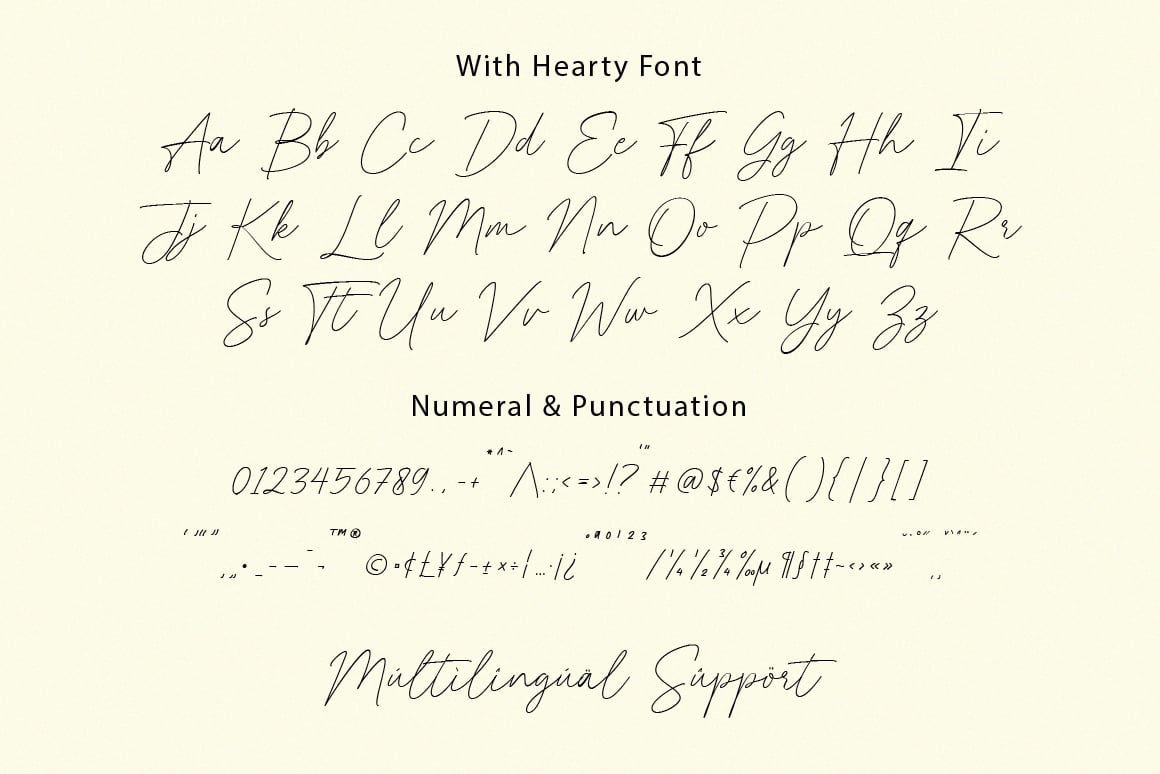 With Hearty Font
Aa Bb Cc Dd Ee Ff Gg Hh Ii
Jj Kk Ll Mm Nn Oo Pp Qq Rr
Ss Tt Uu Vv Ww Xx Yy Zz
Numeral & Punctuation
0123456789.,-+*^~/\:;<=>!?'"#@$€%&(){|}[]
‚„•_-—¯¬™®©¤¢£¥ƒ-±×÷¦…·¡¿ºª0123/¼½¾‰µ¶§†‡~‹›«»
Múltïlingúäl Súppört